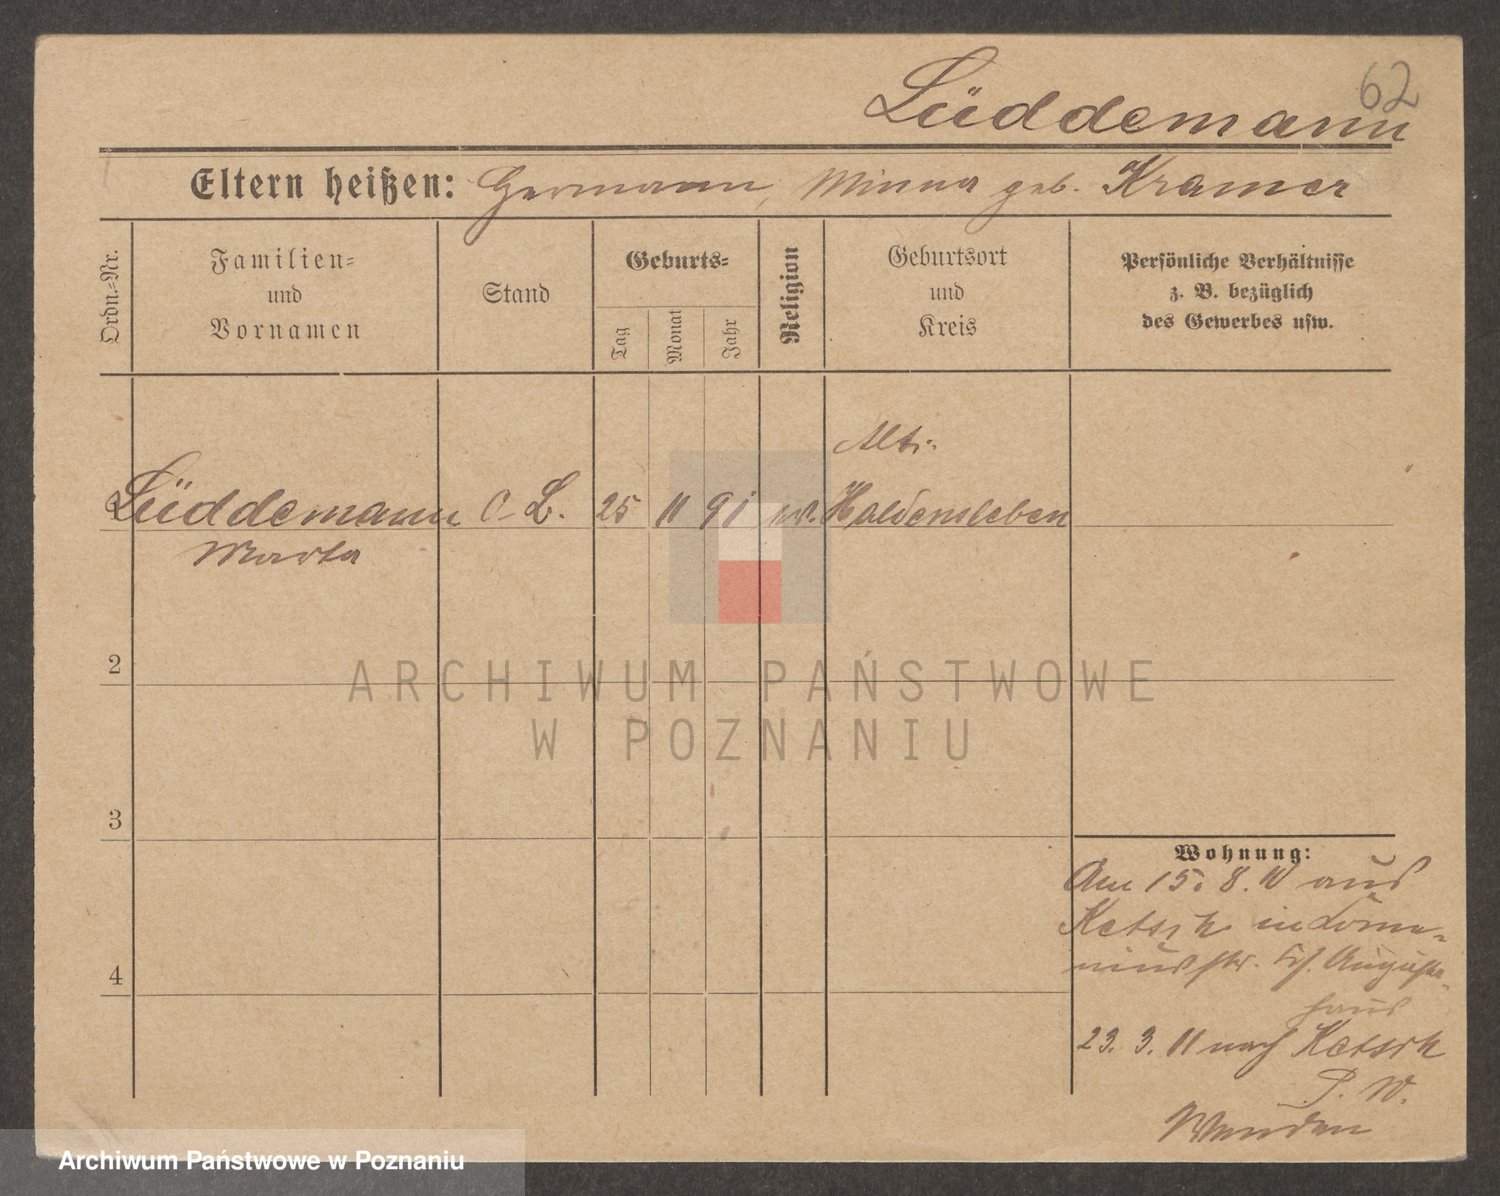 62
Lüddemann
Eltern heißen: Hermann, Minna geb. Kramer
Ordn.-Nr.
Familien-
und
Vornamen
Stand
Geburts-
Tag
Monat
Jahr
Religion
Geburtsort
und
Kreis
Persönliche Verhältnisse
z. B. bezüglich
des Gewerbes usw.
Alt-
Lüddemann L. 25 11 91 Haldensleben
Marta
2
3
4
Wohnung:
Am 15. 8. 10 aus
Ketsch in
str. Augusta-
haus
23. 3. 11 nach Ketsch
P. W.
ARCHIWUM PAŃSTWOWE
W POZNANIU
Archiwum Państwowe w Poznaniu